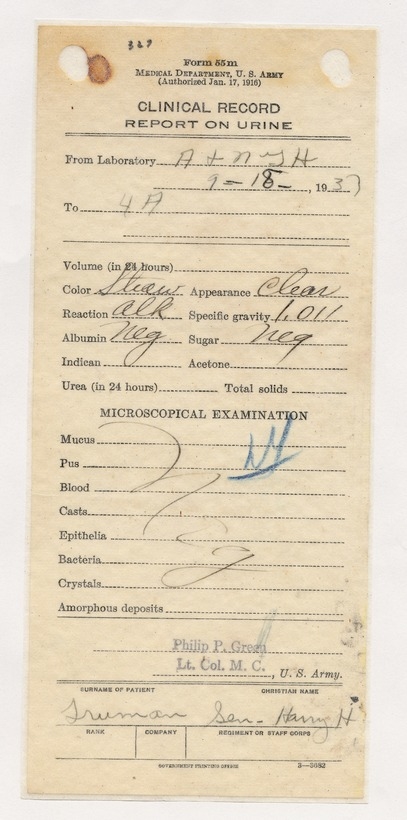 327
Form 55m
MEDICAL DEPARTMENT, U. S. ARMY
(Authorized Jan. 17, 1916)
CLINICAL RECORD
REPORT ON URINE
From Laboratory A & N G H
9-18-, 1937
To 4A
Volume (in 24 hours)
Color Straw Appearance Clear
Reaction alk Specific gravity 1.011
Albumin Neg Sugar Neg
Indican Acetone
Urea (in 24 hours) Total solids
MICROSCOPICAL EXAMINATION
Mucus
Pus
Blood
Casts
Epithelia
Bacteria
Crystals
Amorphous deposits
Neg
Philip P. Green
Lt. Col. M. C.
, U. S. Army.
SURNAME OF PATIENT CHRISTIAN NAME
Truman Sen- Harry H
RANK COMPANY REGIMENT OR STAFF CORPS
GOVERNMENT PRINTING OFFICE 3—5682